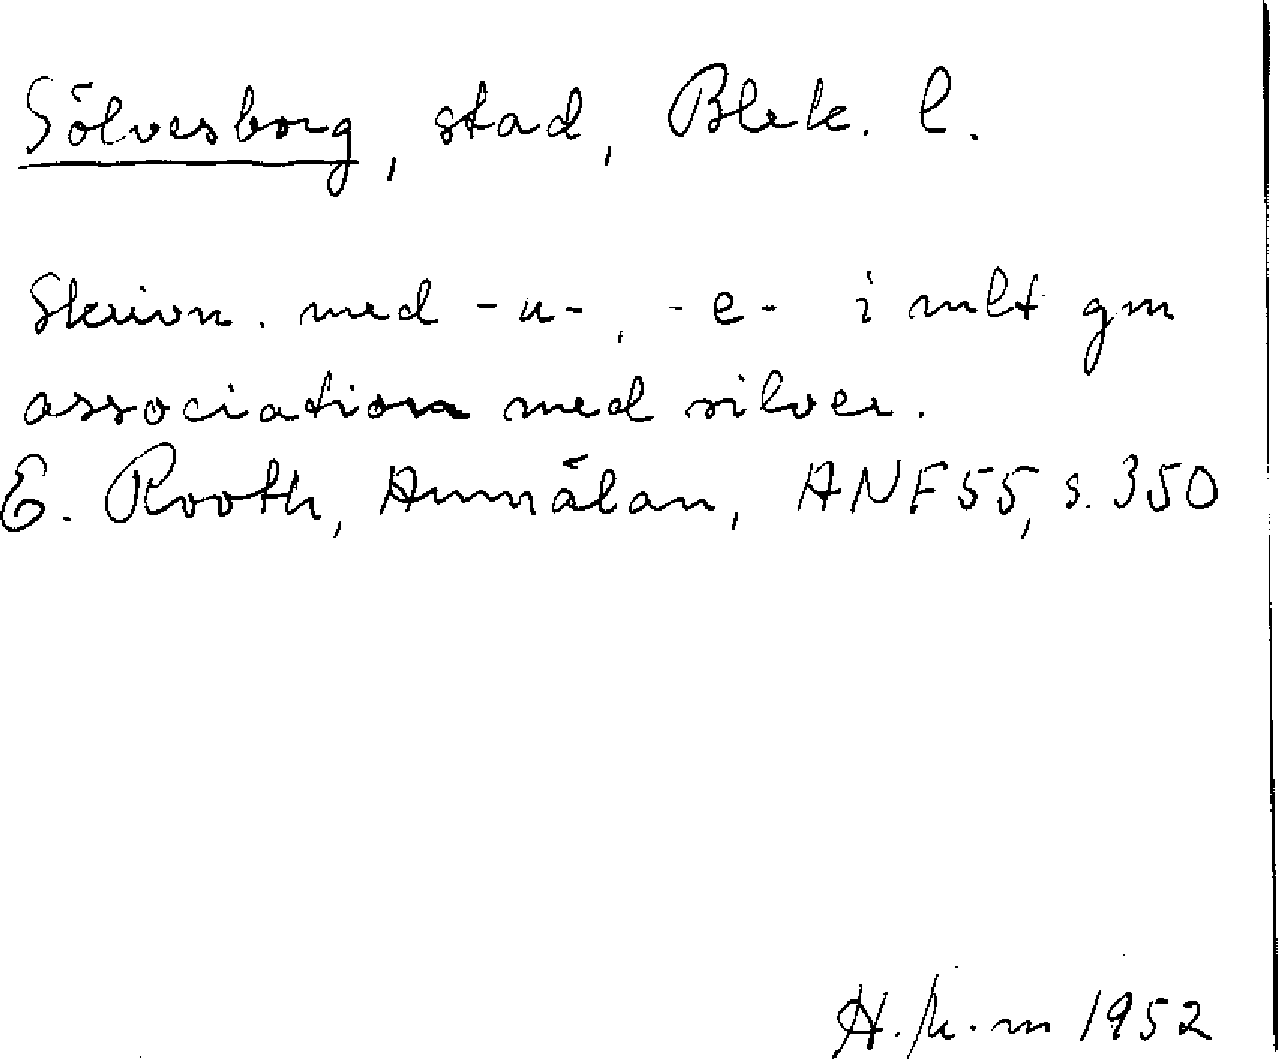 Sölvesborg, stad, Blek. l.
Skrivn. med -u-, -e- i mlt gm
association med silver.
E. Rooth, Anmälan, ANF 55, s. 350
1952